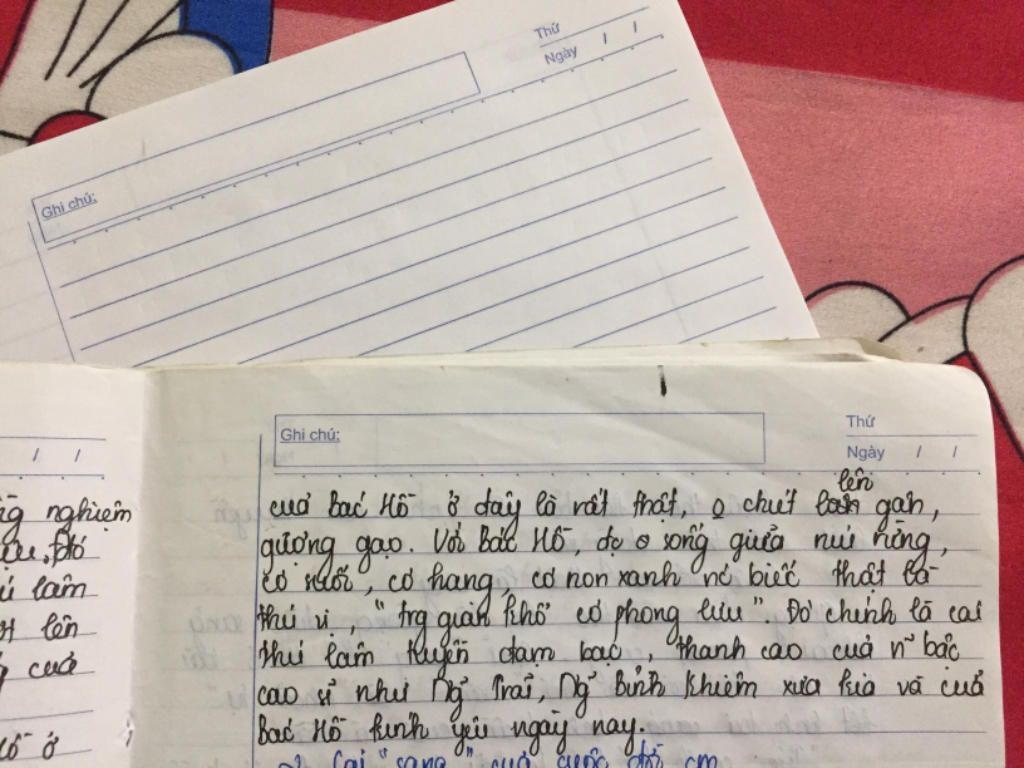 Thứ
Ngày / /
Ghi chú:
Ghi chú:
Thứ
Ngày / /
/ /
nghiệm
Đó
lâm
lên
của
ở
lên
của Bác Hồ ở đây là rất thật, o chút gân,
gượng gạo. Với Bác Hồ, đc o sống giữa núi rừng,
có suối, có hang, có non xanh nc biếc thật là
thú vị, "trg gian khổ có phong lưu". Đó chính là cái
thú lâm tuyền đạm bạc, thanh cao của n~ bậc
cao sĩ như Ng~ Trãi, Ng~ Bỉnh Khiêm xưa kia và của
Bác Hồ kính yêu ngày nay.
Cái "sang" của cuộc đời cm